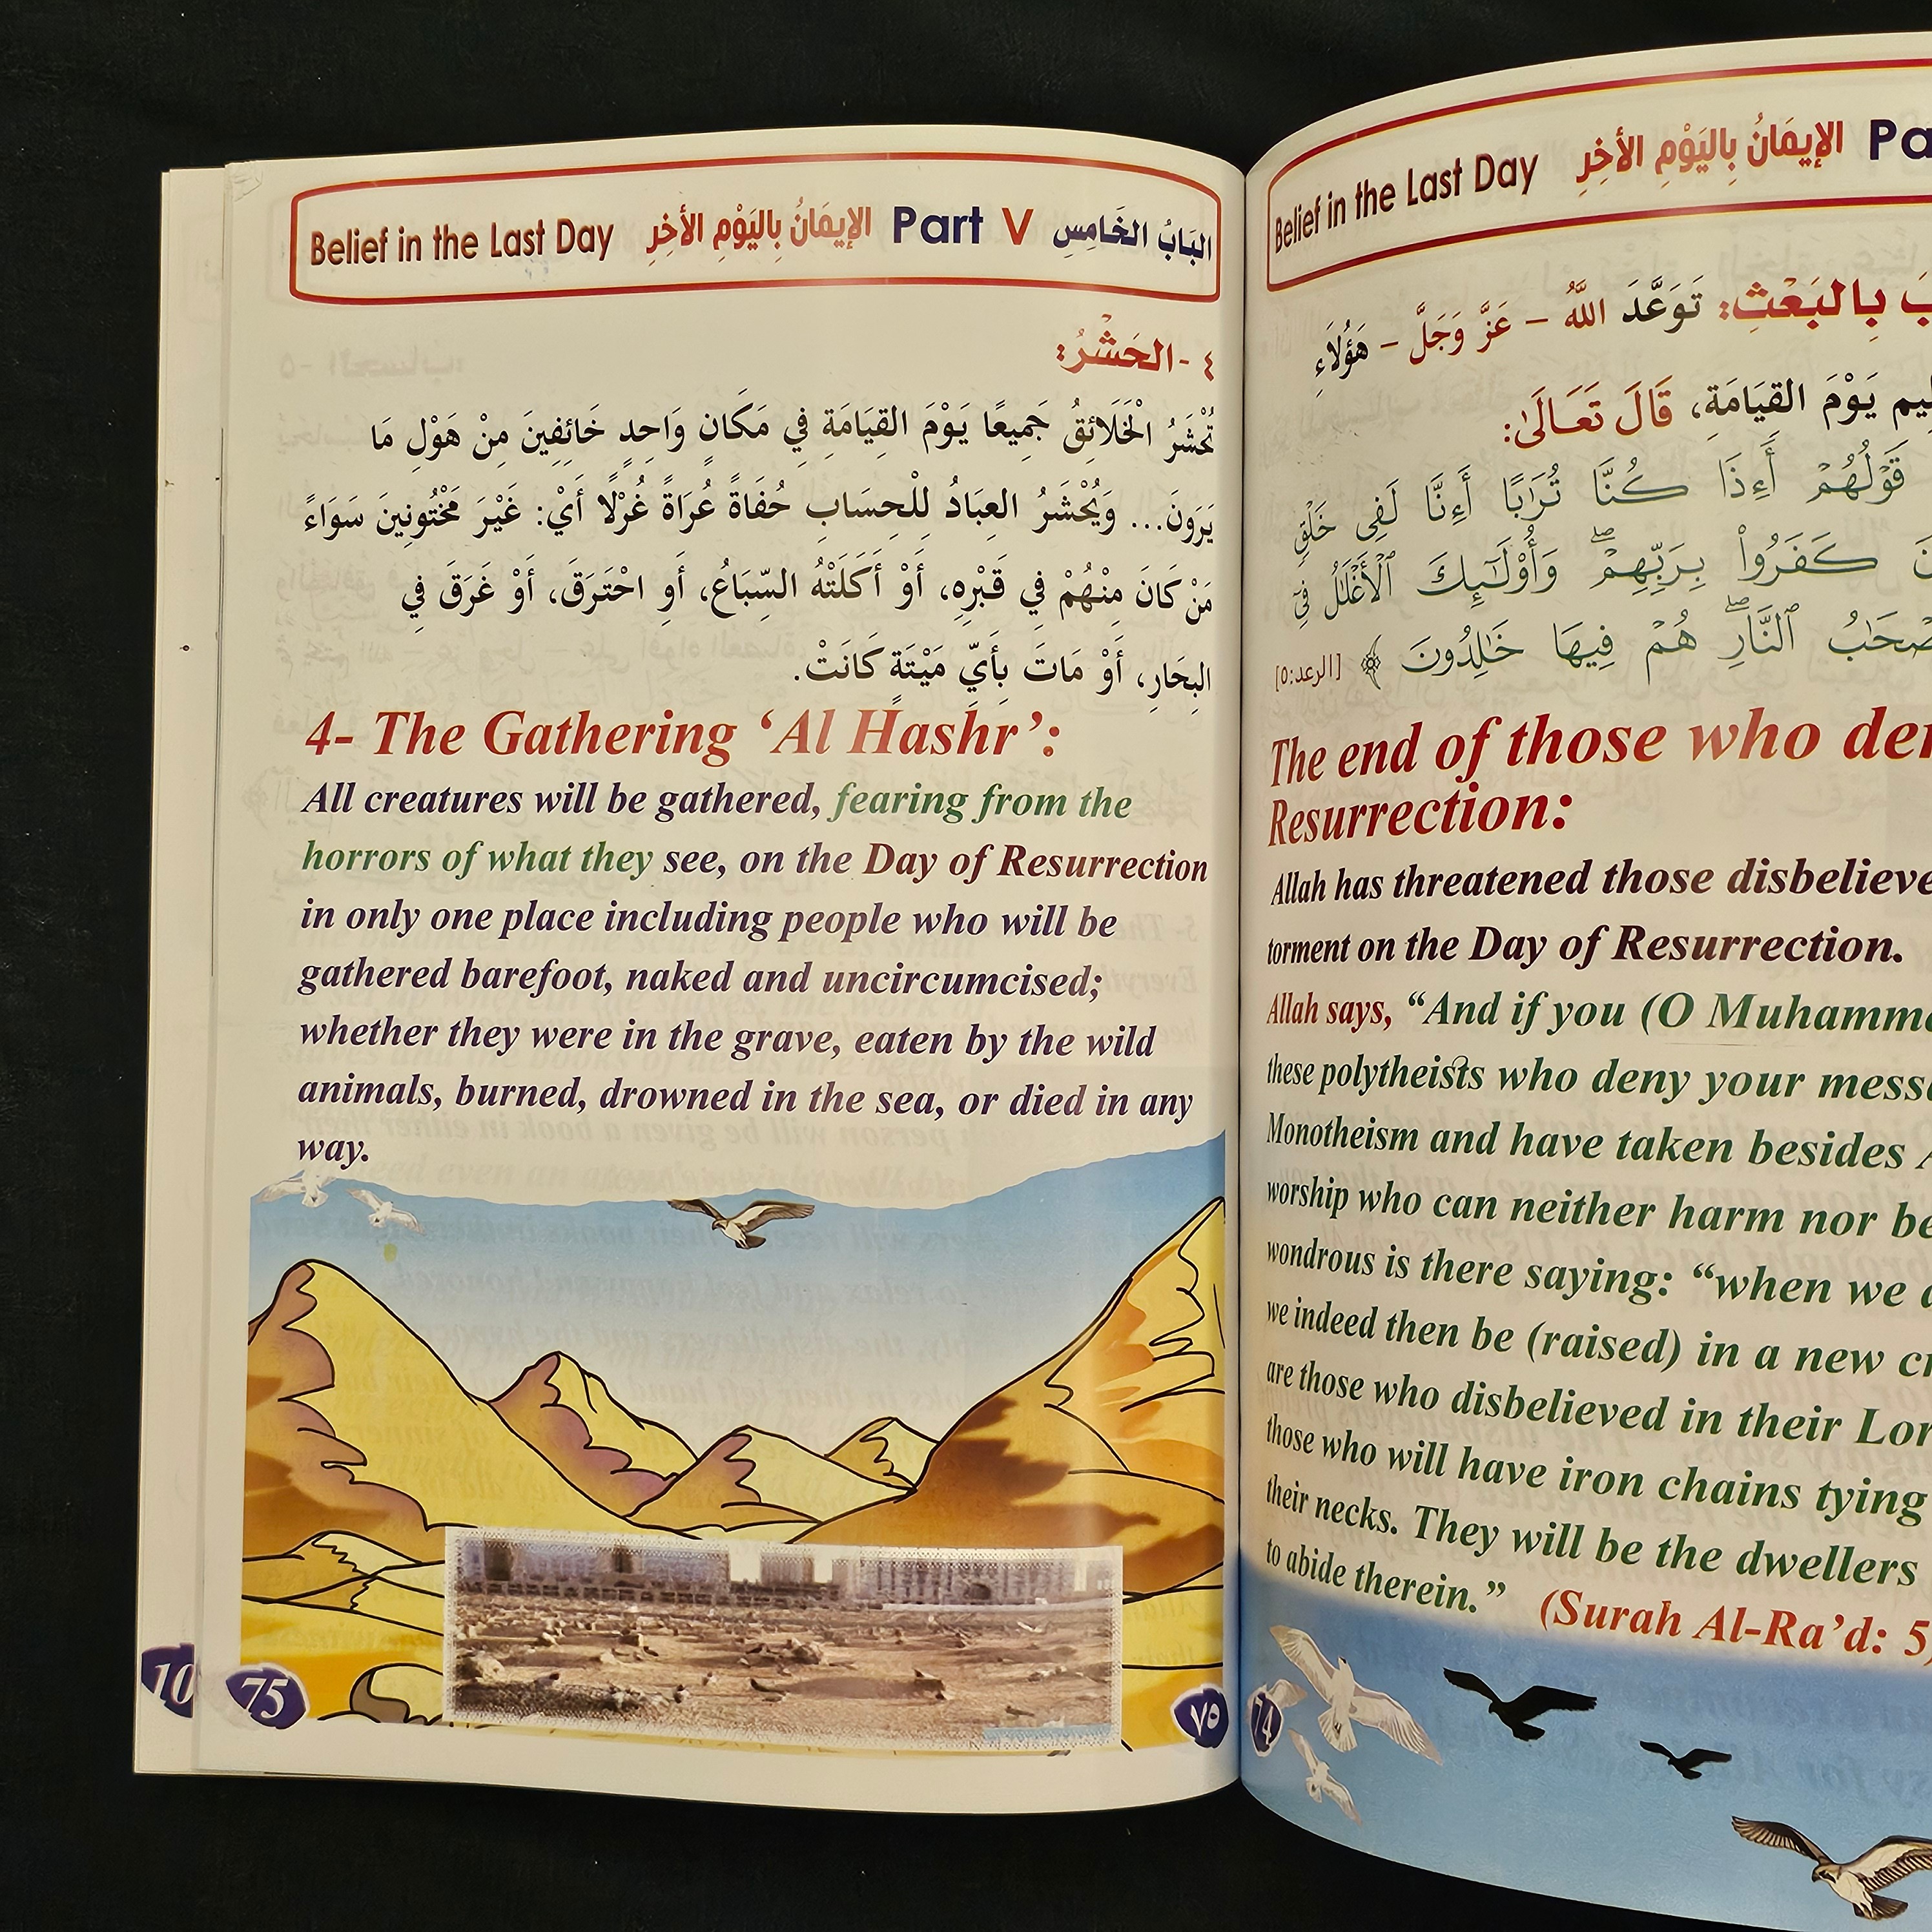 Belief in the Last Day الإيمَانُ بِاليَوْمِ الأخِرِ Part V البَابُ الخَامِسِ
٤ -الحَشْرُ:
تُحْشَرُ الْخَلَائِقُ جَمِيعًا يَوْمَ القِيَامَةِ فِي مَكَانٍ وَاحِدٍ خَائِفِينَ مِنْ هَوْلِ مَا
يَرَونَ... وَيُحْشَرُ العِبَادُ لِلْحِسَابِ حُفَاةً عُرَاةً غُرْلًا أَيْ: غَيْرَ مَخْتُونِينَ سَوَاءً
مَنْ كَانَ مِنْهُمْ فِي قَبْرِهِ، أَوْ أَكَلَتْهُ السِّبَاعُ، أَو احْتَرَقَ، أَوْ غَرَقَ فِي
البِحَارِ، أَوْ مَاتَ بِأَيِّ مَيْتَةٍ كَانَتْ.
4- The Gathering ‘Al Hashr’:
All creatures will be gathered, fearing from the
horrors of what they see, on the Day of Resurrection
in only one place including people who will be
gathered barefoot, naked and uncircumcised;
whether they were in the grave, eaten by the wild
animals, burned, drowned in the sea, or died in any
way.
10
75
٧٥
Belief in the Last Day الإيمَانُ بِاليَوْمِ الأخِرِ
بِالبَعْثِ: تَوَعَّدَ اللَّهُ – عَزَّ وَجَلَّ – هَؤُلَاءِ
يَوْمَ القِيَامَةِ، قَالَ تَعَالَىٰ:
قَوْلُهُمْ أَءِذَا كُنَّا تُرَٰبًا أَءِنَّا لَفِى خَلْقٍ
كَفَرُوا۟ بِرَبِّهِمْ ۖ وَأُو۟لَٰٓئِكَ ٱلْأَغْلَٰلُ فِىٓ
ٱلنَّارِ ۖ هُمْ فِيهَا خَٰلِدُونَ ﴾ [الرعد:٥]
The end of those who
Resurrection:
Allah has threatened those
torment on the Day of Resurrection.
Allah says, “And if you (O
these polytheists who deny your
Monotheism and have taken besides
worship who can neither harm nor
wondrous is there saying: “when we
we indeed then be (raised) in a new
are those who disbelieved in their
those who will have iron chains tying
their necks. They will be the dwellers
to abide therein.” (Surah Al-Ra’d: 5
74